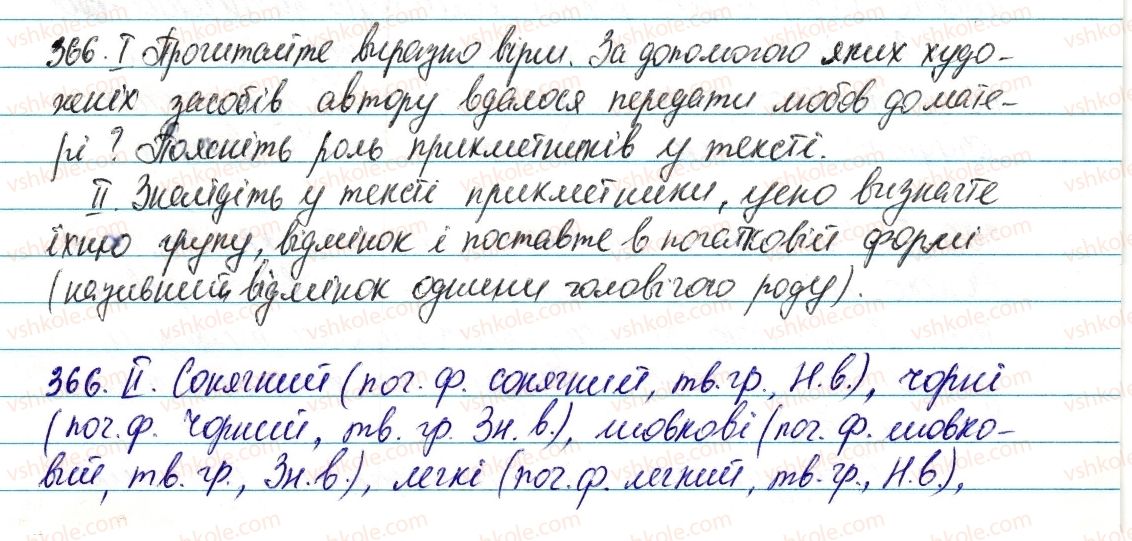 366. І Прочитайте виразно вірш. За допомогою яких худо-
жніх засобів автору вдалося передати любов до мате-
рі? Поясніть роль прикметників у тексті.
ІІ. Знайдіть у тексті прикметники, усно визначте
їхню групу, відмінок і поставте в початковій формі
(називний відмінок однини чоловічого роду).
366. ІІ. Сонячний (поч. ф. сонячний, тв. гр., Н.в.), чорні
(поч. ф. чорний, тв. гр. Зн. в.), шовкові (поч. ф. шовко-
вий, тв. гр., Зн. в.), легкі (поч. ф. легкий, тв. гр., Н.в.),